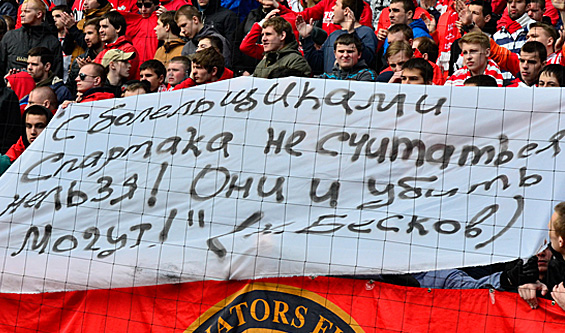 "С болельщиками
Спартака не считаться
нельзя! Они и убить
могут!" (К. Бесков)
ATORS F